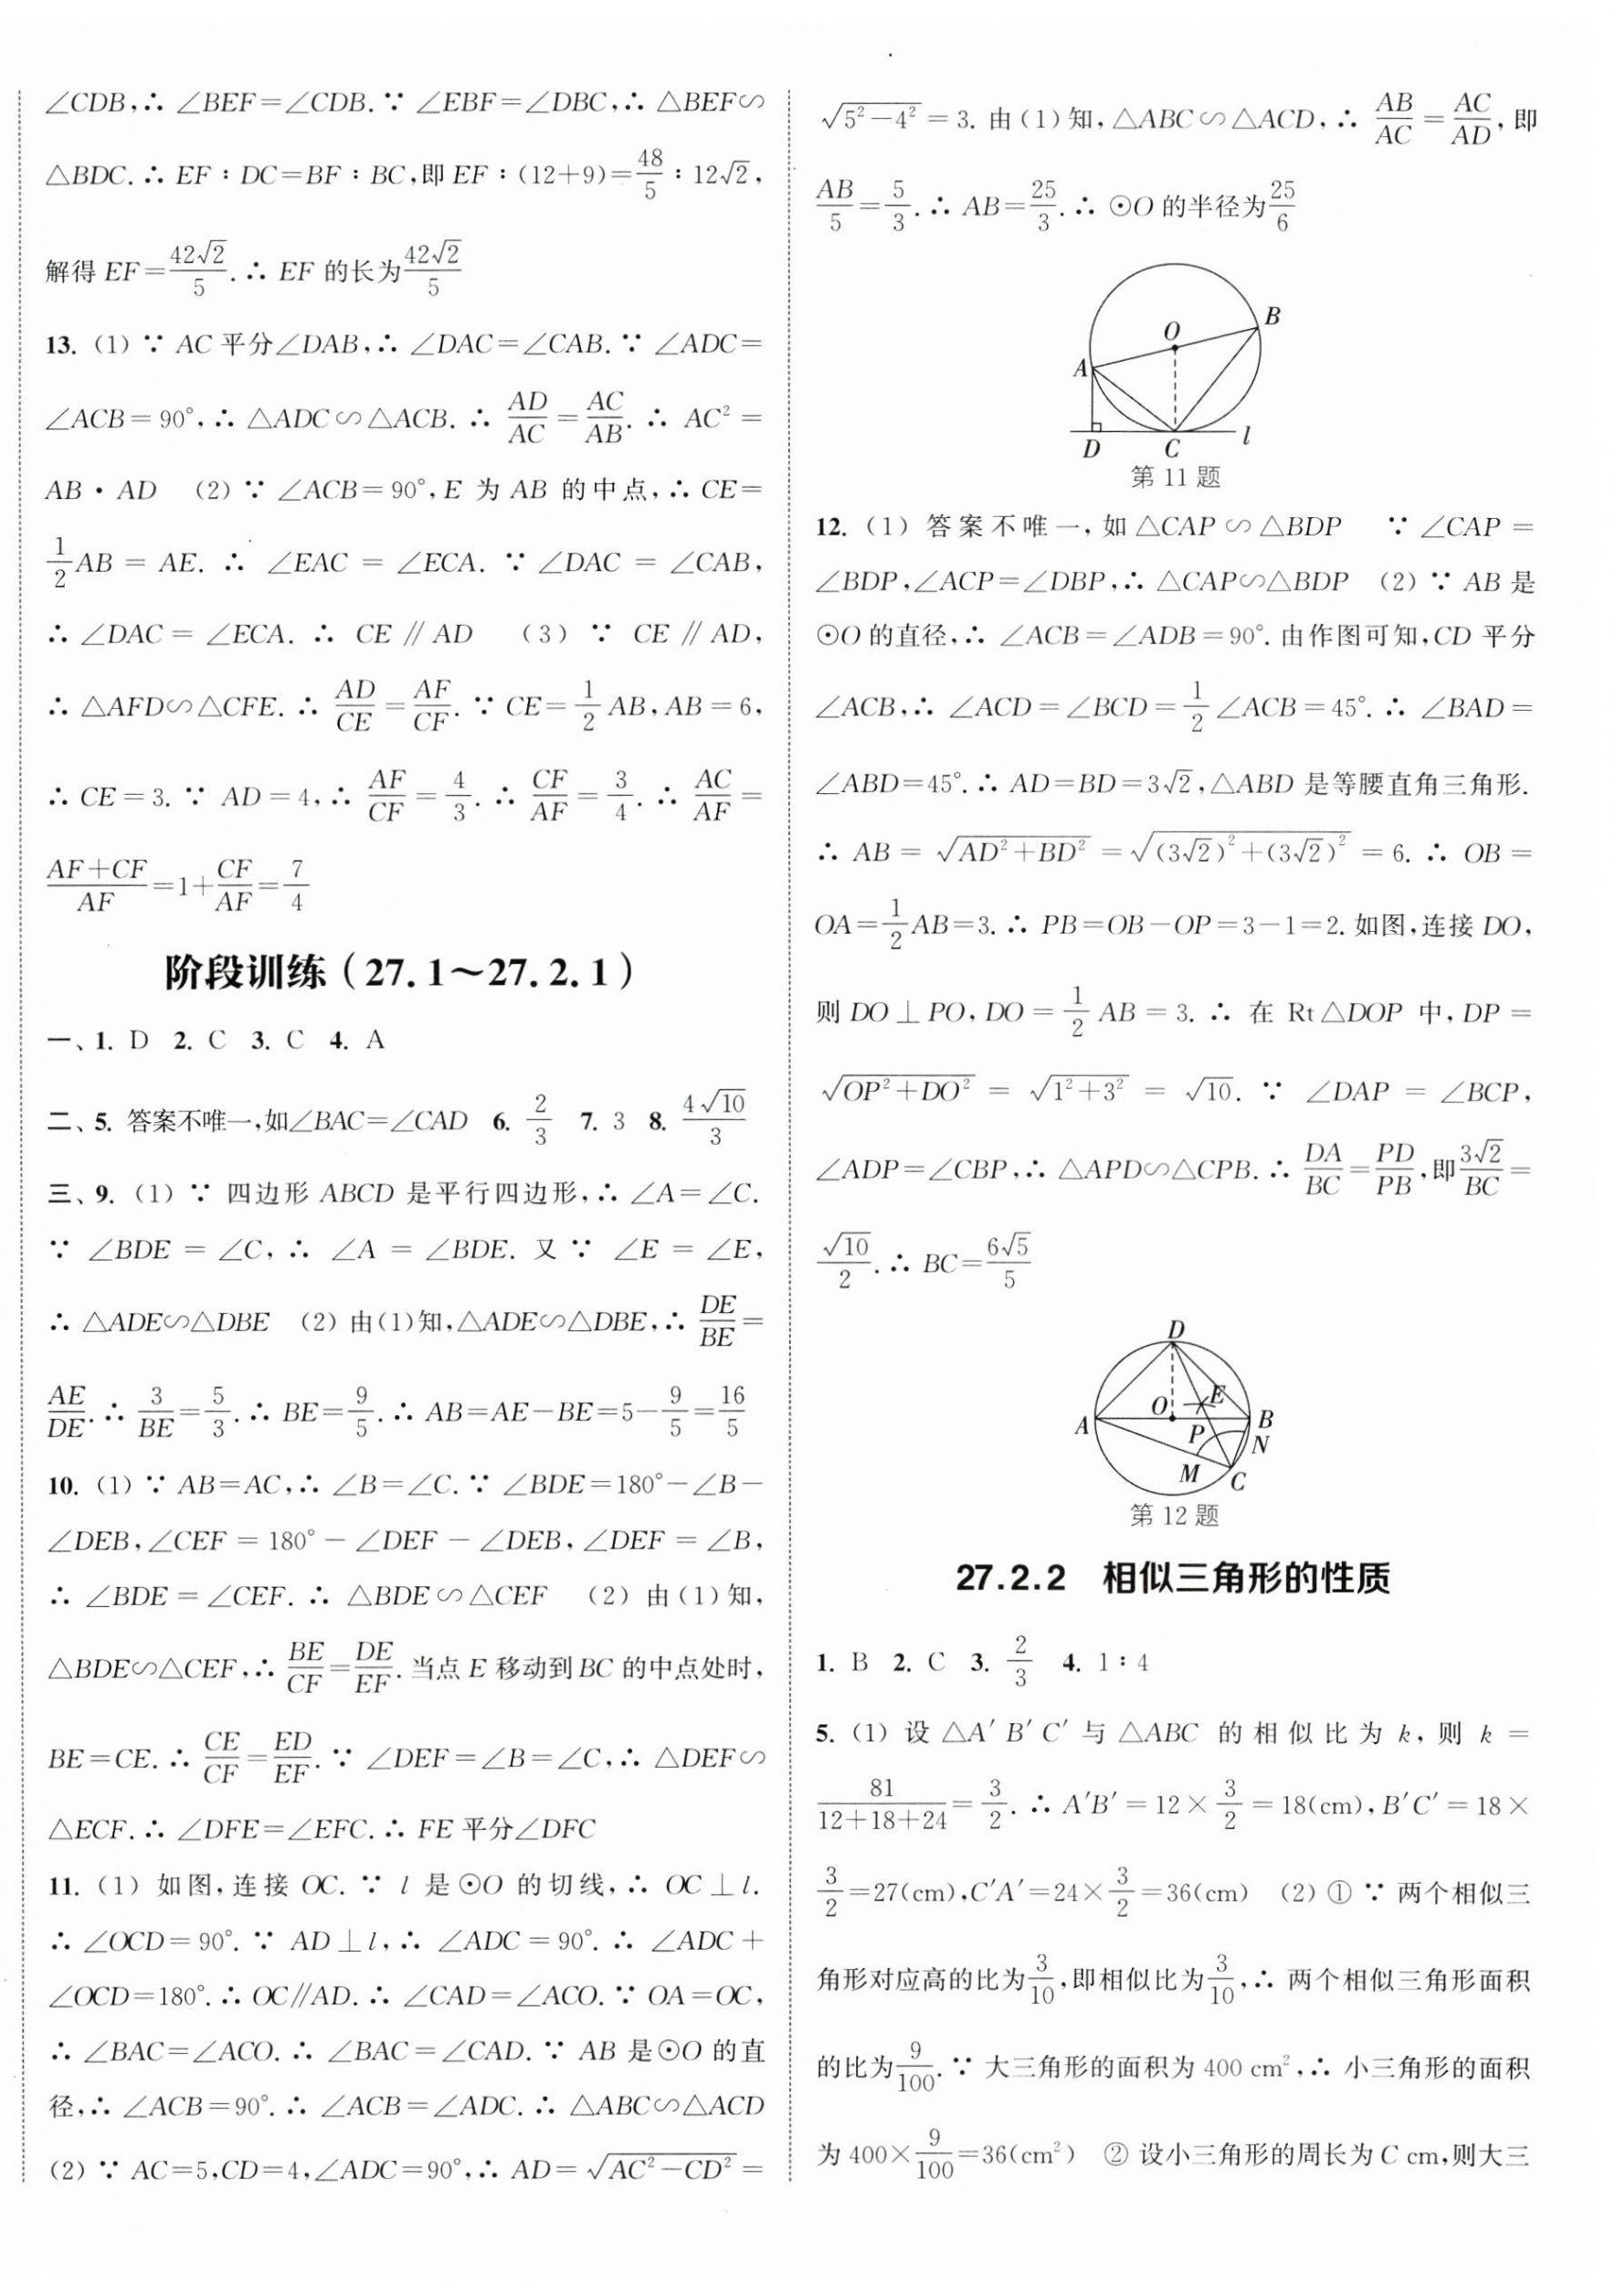 ∠CDB,∴ ∠BEF=∠CDB.∵ ∠EBF=∠DBC,∴ △BEF∽
△BDC.∴ EF∶DC=BF∶BC,即 EF∶(12+9)=48/5∶12√2,
解得 EF=42√2/5.∴ EF 的长为42√2/5
13. (1) ∵ AC 平分∠DAB,∴ ∠DAC=∠CAB.∵ ∠ADC=
∠ACB=90°,∴ △ADC∽△ACB.∴ AD/AC=AC/AB.∴ AC²=
AB·AD (2) ∵ ∠ACB=90°,E 为 AB 的中点,∴ CE=
1/2AB=AE.∴ ∠EAC=∠ECA.∵ ∠DAC=∠CAB,
∴ ∠DAC=∠ECA.∴ CE∥AD (3) ∵ CE∥AD,
∴ △AFD∽△CFE.∴ AD/CE=AF/CF.∵ CE=1/2 AB,AB=6,
∴ CE=3.∵ AD=4,∴ AF/CF=4/3.∴ CF/AF=3/4.∴ AC/AF=
(AF+CF)/AF=1+CF/AF=7/4
阶段训练(27.1～27.2.1)
一、1. D 2. C 3. C 4. A
二、5. 答案不唯一,如∠BAC=∠CAD 6. 2/3 7. 3 8. 4√10/3
三、9. (1) ∵ 四边形 ABCD 是平行四边形,∴ ∠A=∠C.
∵ ∠BDE=∠C,∴ ∠A=∠BDE. 又∵ ∠E=∠E,
∴ △ADE∽△DBE (2) 由(1)知,△ADE∽△DBE,∴ DE/BE=
AE/DE.∴ 3/BE=5/3.∴ BE=9/5.∴ AB=AE-BE=5-9/5=16/5
10. (1) ∵ AB=AC,∴ ∠B=∠C.∵ ∠BDE=180°-∠B-
∠DEB,∠CEF=180°-∠DEF-∠DEB,∠DEF=∠B,
∴ ∠BDE=∠CEF.∴ △BDE∽△CEF (2) 由(1)知,
△BDE∽△CEF,∴ BE/CF=DE/EF.当点 E 移动到BC 的中点处时,
BE=CE.∴ CE/CF=ED/EF.∵ ∠DEF=∠B=∠C,∴ △DEF∽
△ECF.∴ ∠DFE=∠EFC.∴ FE 平分∠DFC
11. (1) 如图,连接 OC.∵ l 是⊙O 的切线,∴ OC⊥l.
∴ ∠OCD=90°.∵ AD⊥l,∴ ∠ADC=90°.∴ ∠ADC+
∠OCD=180°.∴ OC∥AD.∴ ∠CAD=∠ACO.∵ OA=OC,
∴ ∠BAC=∠ACO.∴ ∠BAC=∠CAD.∵ AB 是⊙O 的直
径,∴ ∠ACB=90°.∴ ∠ACB=∠ADC.∴ △ABC∽△ACD
(2) ∵ AC=5,CD=4,∠ADC=90°,∴ AD=√(AC²-CD²)=
√(5²-4²)=3. 由(1)知,△ABC∽△ACD,∴ AB/AC=AC/AD,即
AB/5=5/3.∴ AB=25/3.∴ ⊙O 的半径为25/6
B
O
A
D
C
l
第 11 题
12. (1) 答案不唯一,如△CAP∽△BDP ∵ ∠CAP=
∠BDP,∠ACP=∠DBP,∴ △CAP∽△BDP (2) ∵ AB 是
⊙O 的直径,∴ ∠ACB=∠ADB=90°.由作图可知,CD 平分
∠ACB,∴ ∠ACD=∠BCD=1/2∠ACB=45°.∴ ∠BAD=
∠ABD=45°.∴ AD=BD=3√2,△ABD 是等腰直角三角形.
∴ AB=√(AD²+BD²)=√((3√2)²+(3√2)²)=6.∴ OB=
OA=1/2AB=3.∴ PB=OB-OP=3-1=2. 如图,连接 DO,
则 DO⊥PO,DO=1/2 AB=3.∴ 在 Rt△DOP 中,DP=
√(OP²+DO²)=√(1²+3²)=√10.∵ ∠DAP=∠BCP,
∠ADP=∠CBP,∴ △APD∽△CPB.∴ DA/BC=PD/PB,即3√2/BC=
√10/2.∴ BC=6√5/5
D
O
E
A
B
P
N
M
C
第 12 题
27.2.2 相似三角形的性质
1. B 2. C 3. 2/3 4. 1∶4
5. (1) 设 △A′B′C′与△ABC 的相似比为 k,则 k=
81/(12+18+24)=3/2.∴ A′B′=12×3/2=18(cm),B′C′=18×
3/2=27(cm),C′A′=24×3/2=36(cm) (2) ① ∵ 两个相似三
角形对应高的比为3/10,即相似比为3/10,∴ 两个相似三角形面积
的比为9/100.∵ 大三角形的面积为 400 cm²,∴ 小三角形的面积
为 400×9/100=36(cm²) ② 设小三角形的周长为 C cm,则大三